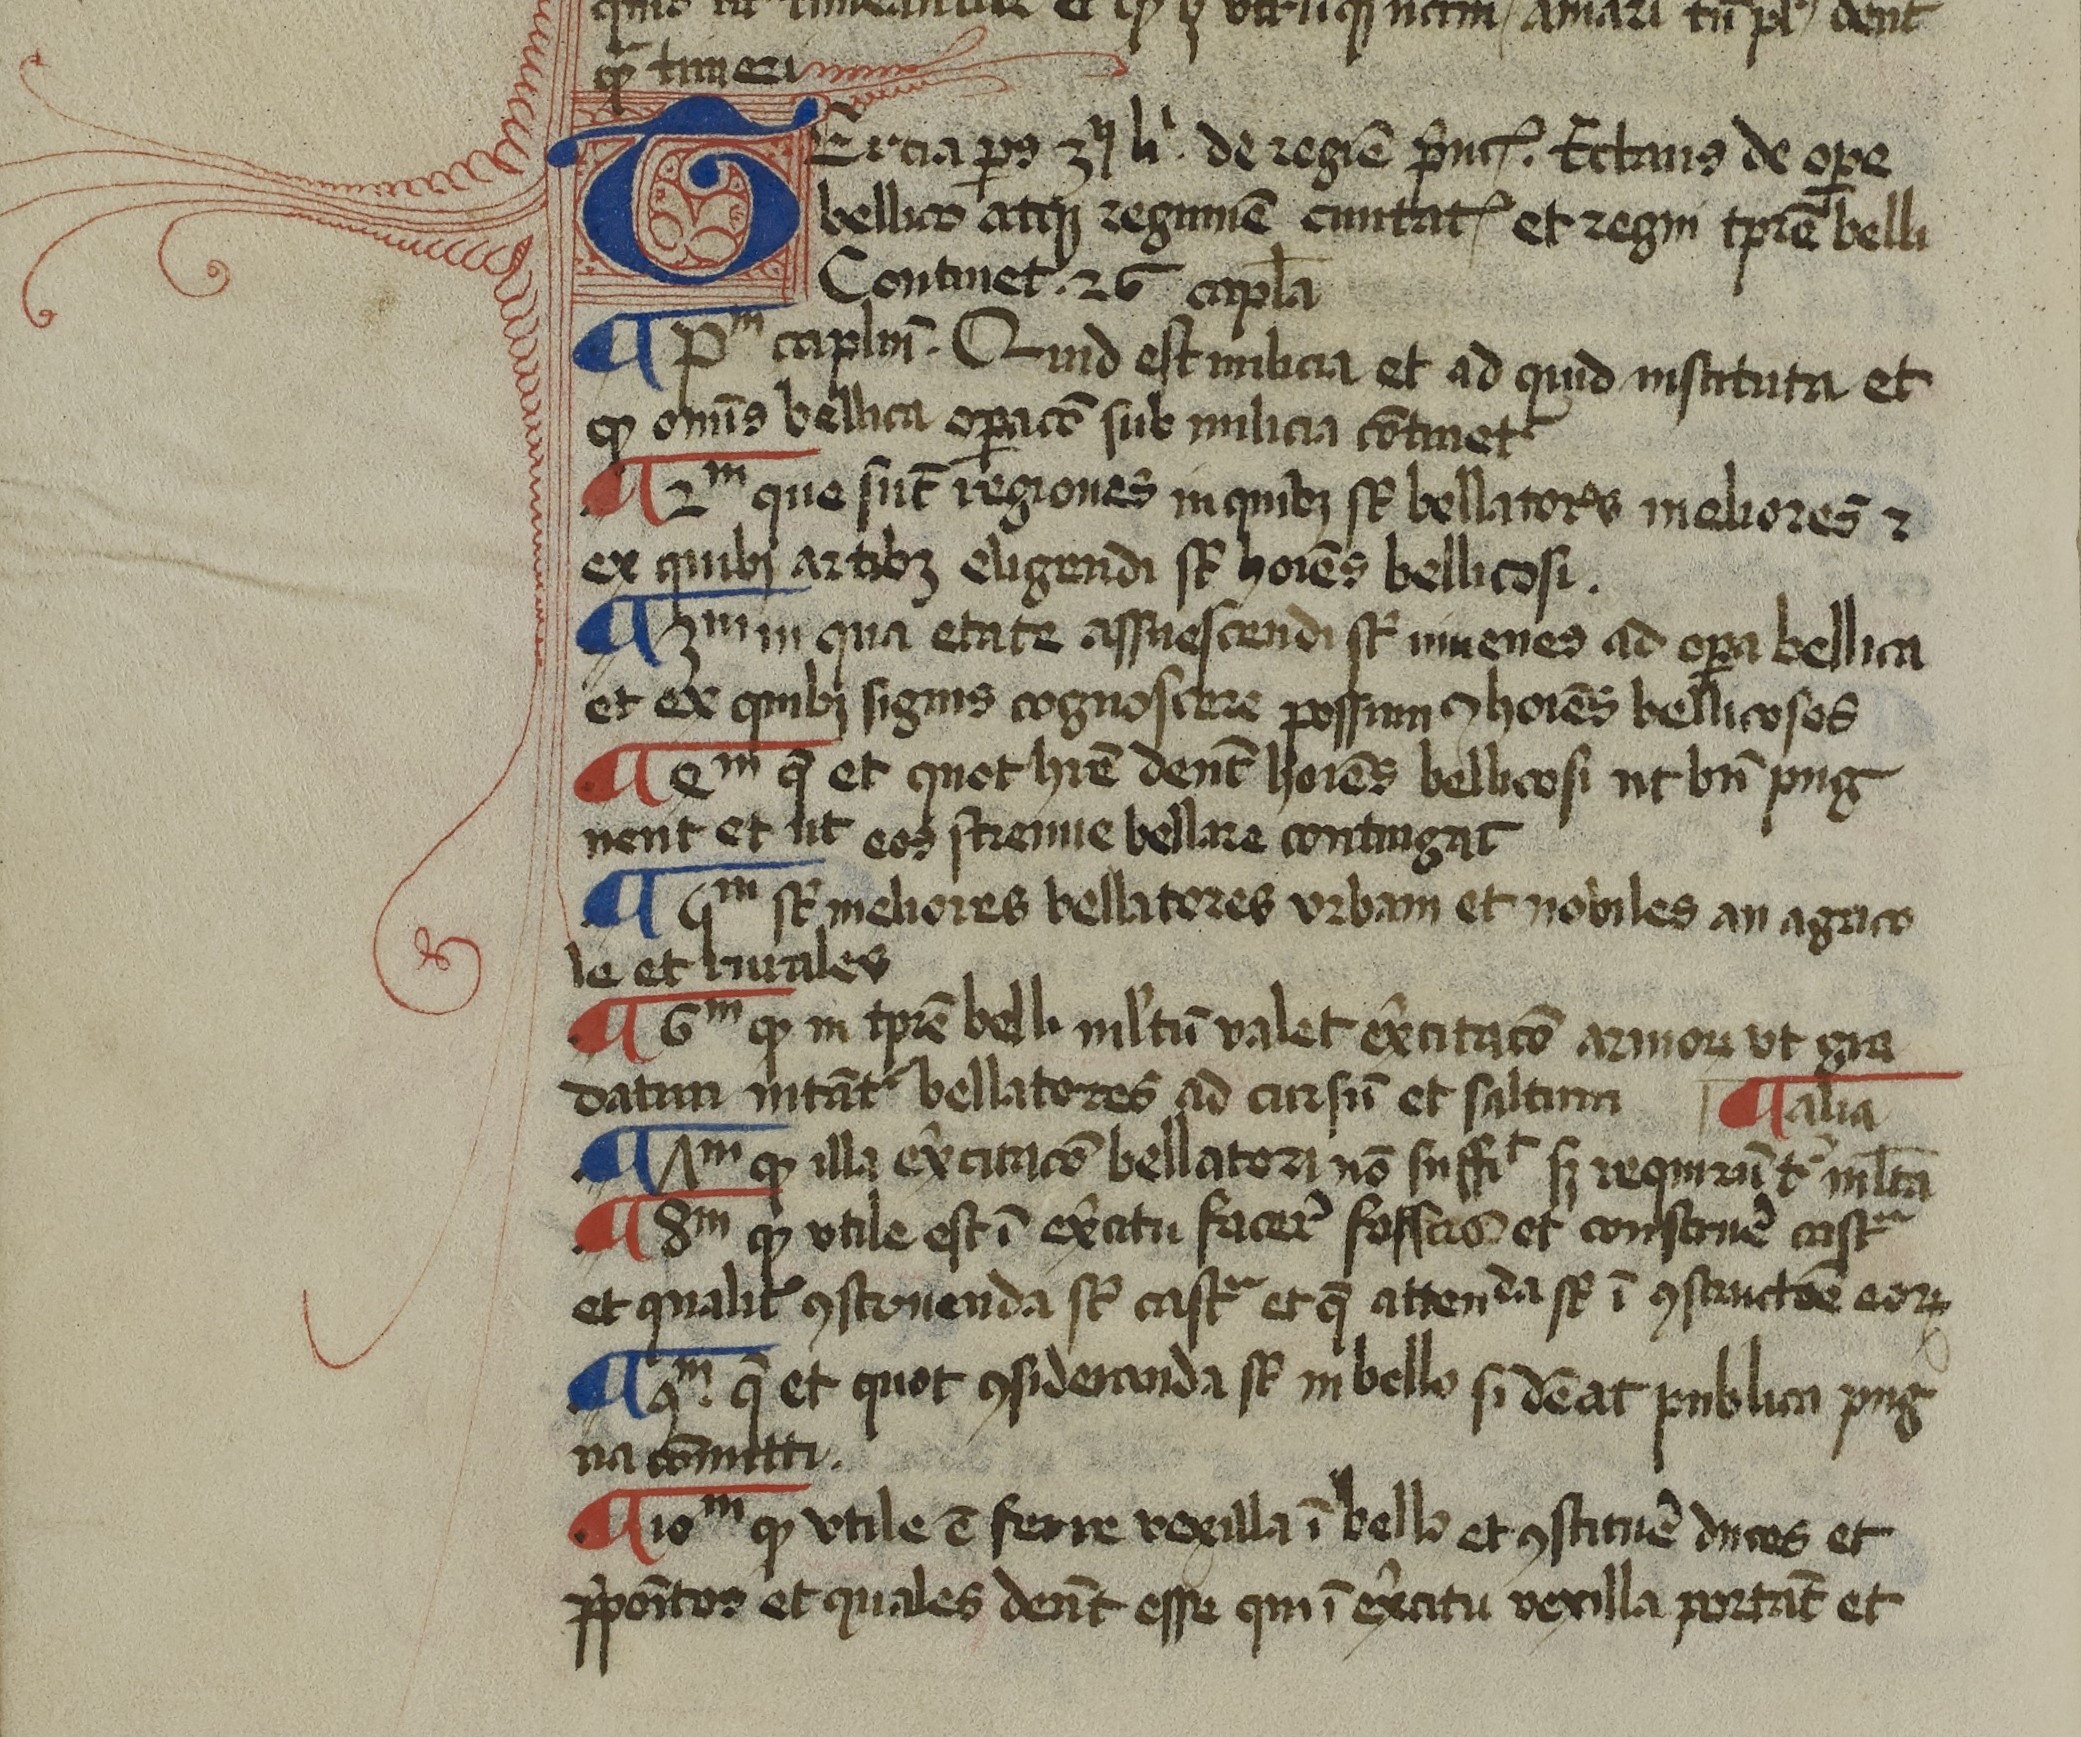 qͥ timeri
TErcia ps 3ij li. de regiẽ p̃nc. Et̃tans de oꝑe
bellico atqꝫ regimiẽ ciuitat et regni tp̃rẽ belli
Continet .26 capl̃a
¶ Pᵐ capl̃m̃. Quid est milicia et ad quid instituta et
ꝙ omĩs bellica oꝑacõ sub milicia cõtinet᷑
¶ 2ᵐ que sũt regiones in quibꝫ st᷑ bellatores meliores ⁊
ex quibꝫ artibꝫ eligendi st᷑ hoiẽs bellicosi.
¶ 3ᵐ in qua etate assuescendi st᷑ iuuenes ad oꝑa bellica
et ex quibꝫ signis cognoscere possumꝰ hoiẽs bellicosos
¶ 4ᵐ q̃ et quot hr̃e dent̃ hoiẽs bellicosi ut bñ pug
nent et ut eos strenue bellare contingat
¶ 5ᵐ st᷑ meliores bellatores vrbani et nobiles an agrico
le et rurales
¶ 6ᵐ ꝙ in tp̃rẽ belli ml̓tũ valet ex̓citacõ armoꝝ vt gra
datim ĩtãt᷑ bellatores ad cursũ et saltum ¶ alia
¶ 7ᵐ ꝙ illa ex̓citacõ bellatori nõ suffiᵗ sꝫ requirũt᷑ ml̃ta
¶ 8ᵐ ꝙ vtile est ĩ ex̓citu facer̓ fossas et construer̓ castᵃ
et qualit᷑ ꝯstruenda st᷑ castᵃ et q̃ attenda st᷑ ĩ ꝯstructõe eoꝝ
¶ 9ᵐ. q̃ et quot ꝯsideranda st᷑ in bello si dẽat publica pug
na cõmitti.
¶ 10ᵐ ꝙ vtile ẽ ferre vexilla ĩ bello et ꝯstituer̓ duces et
p̃poĩtos et quales dent̃ esse qui ĩ ex̓citu vexilla portãt et